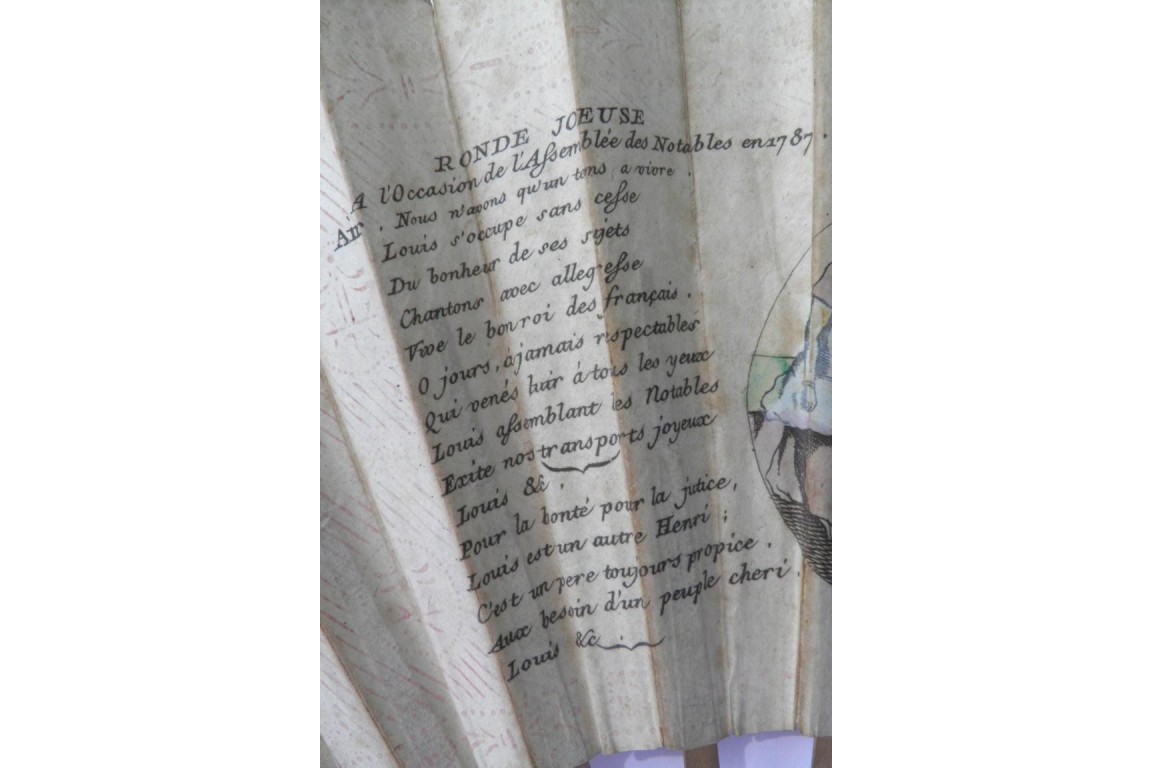 RONDE JOEUSE
A l'Occasion de l'Aſsemblée des Notables en 1787.
Air. Nous n'avons qu'un tems a vivre.
Louis s'occupe sans ceſse
Du bonheur de ses sujets
Chantons avec allegreſse
Vive le bon roi des français.
O jours, à jamais respectables
Qui venés luir á tous les yeux
Louis aſsemblant les Notables
Exite nos transports joyeux
Louis &c.
Pour la bonté pour la jutice,
Louis est un autre Henri;
C'est un pere toujours propice.
Aux besoin d'un peuple cheri.
Louis &c.